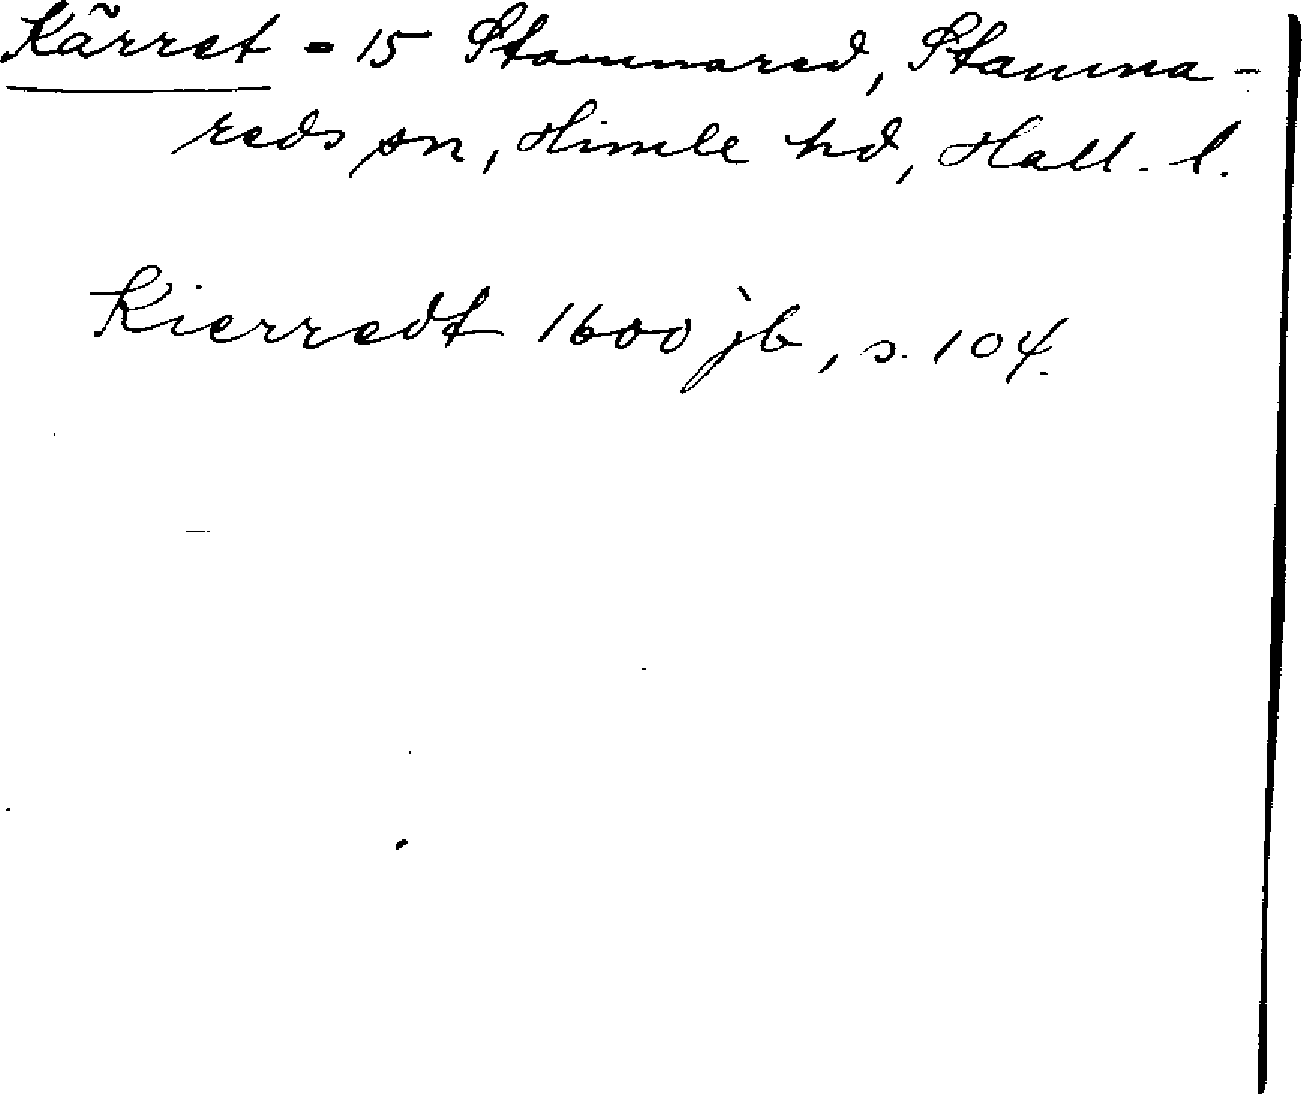 Kärret = 15 Stamnared, Stamna-
reds sn, Himle hd, Hall. l.
Kierredt 1600 jb, s. 104.